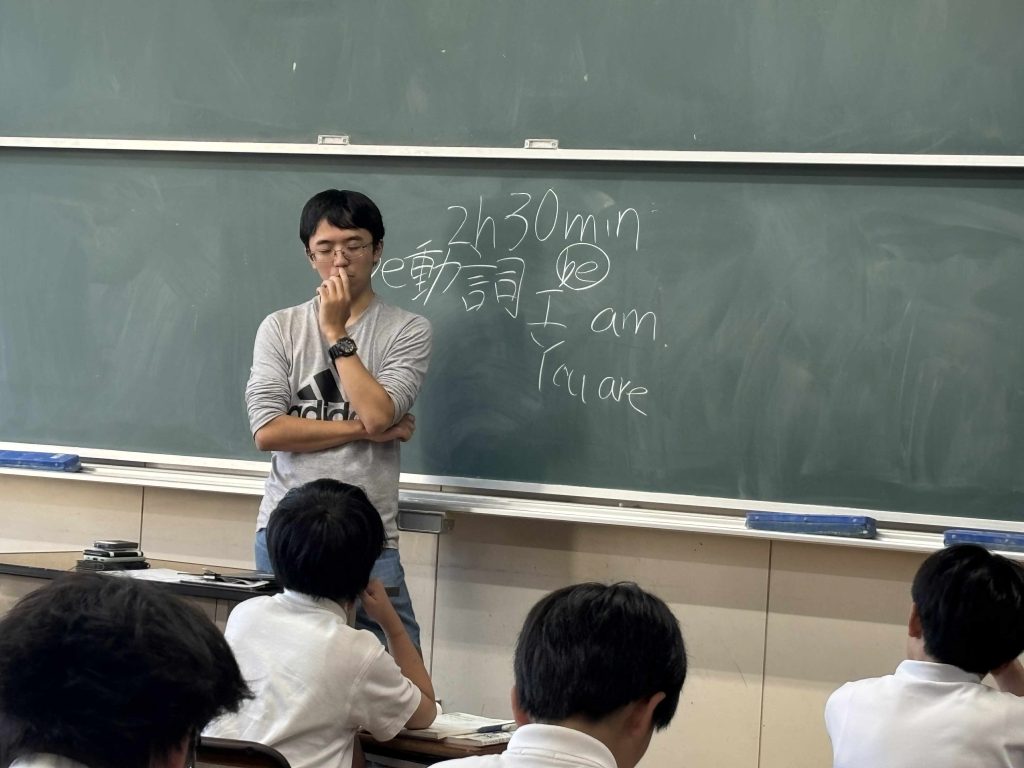 2h30min
e動詞 be
I am.
You are
adidas